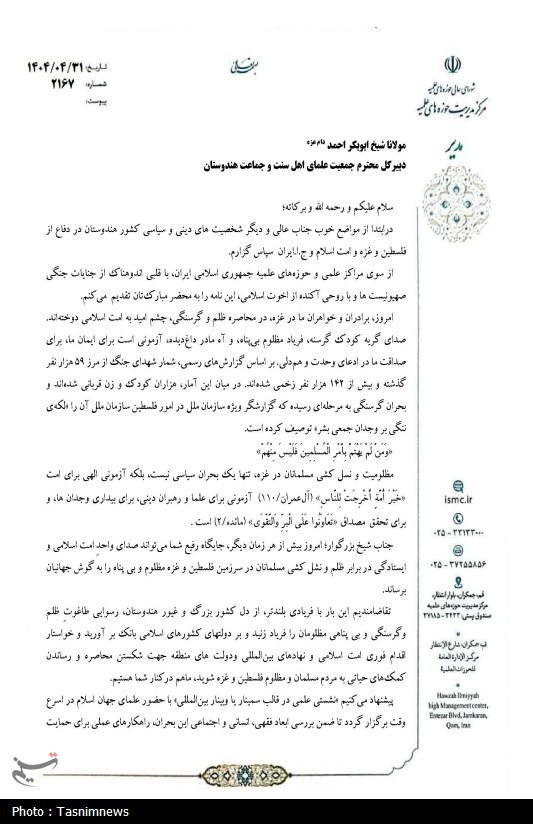 تاریخ: ۱۴۰۴/۰۴/۳۱
شماره: ۲۱۶۷
پیوست:
شورای عالی حوزه های علمیه
مرکز مدیریت حوزه های علمیه
مدیر
مولانا شیخ ابوبکر احمد دام عزه
دبیرکل محترم جمعیت علمای اهل سنت و جماعت هندوستان
سلام علیکم و رحمه الله و برکاته؛
درابتدا از مواضع خوب جناب عالی و دیگر شخصیت های دینی و سیاسی کشور هندوستان در دفاع از
فلسطین و غزه و امت اسلام و ج.ا.ایران سپاس گزارم.
از سوی مراکز علمی و حوزه‌های علمیه جمهوری اسلامی ایران، با قلبی اندوهناک از جنایات جنگی
صهیونیست ها و با روحی آکنده از اخوت اسلامی، این نامه را به محضر مبارک‌تان تقدیم می‌کنم.
امروز، برادران و خواهران ما در غزه، در محاصره ظلم و گرسنگی، چشم امید به امت اسلامی دوخته‌اند.
صدای گریه کودک گرسنه، فریاد مظلوم بی‌پناه، و آه مادر داغ‌دیده، آزمونی است برای ایمان ما، برای
صداقت ما در ادعای وحدت و هم‌دلی. بر اساس گزارش‌های رسمی، شمار شهدای جنگ از مرز ۵۹ هزار نفر
گذشته و بیش از ۱۴۲ هزار نفر زخمی شده‌اند. در میان این آمار، هزاران کودک و زن قربانی شده‌اند و
بحران گرسنگی به مرحله‌ای رسیده که گزارشگر ویژه سازمان ملل در امور فلسطین سازمان ملل آن را «لکه‌ی
ننگی بر وجدان جمعی بشر» توصیف کرده است.
«وَمَنْ لَمْ يَهْتَمْ بِأَمْرِ الْمُسْلِمِينَ فَلَيْسَ مِنْهُمْ»
مظلومیت و نسل کشی مسلمانان در غزه، تنها یک بحران سیاسی نیست، بلکه آزمونی الهی برای امت
«خَيْرَ أُمَّةٍ أُخْرِجَتْ لِلنَّاسِ» (آل‌عمران/۱۱۰) آزمونی برای علما و رهبران دینی، برای بیداری وجدان ها، و
برای تحقق مصداق «تَعَاوَنُوا عَلَى الْبِرِّ وَالتَّقْوَى» (مائده/۲) است .
جناب شیخ بزرگوار؛ امروز بیش از هر زمان دیگر، جایگاه رفیع شما می‌تواند صدای واحدِ امت اسلامی و
ایستادگی در برابر ظلم و نشل کشی مسلمانان در سرزمین فلسطین و غزه مظلوم و بی پناه را به گوش جهانیان
برساند.
تقاضامندیم این بار با فریادی بلندتر، از دل کشور بزرگ و غیور هندوستان، رسوایی طاغوتِ ظلم
وگرسنگی و بی پناهی مظلومان را فریاد زنید و بر دولتهای کشورهای اسلامی بانک بر آورید و خواستار
اقدام فوری امت اسلامی و نهادهای بین‌المللی ودولت های منطقه جهت شکستن محاصره و رساندن
کمک‌های حیاتی به مردم مسلمان و مظلوم فلسطین و غزه شوید، ماهم درکنار شما هستیم.
پیشنهاد می‌کنیم «نشستی علمی در قالب سمینار یا وبینار بین‌المللی» با حضور علمای جهان اسلام در اسرع
وقت برگزار گردد تا ضمن بررسی ابعاد فقهی، انسانی و اجتماعی این بحران، راهکارهای عملی برای حمایت
ismc.ir
۰۲۵ - ۳۲۱۳۳۰۰۰
۰۲۵ - ۳۷۲۵۵۸۵۶
قم، جمکران، بلوار انتظار،
مرکز مدیریت حوزه های علمیه
صندوق پستی: ۳۴۳۳ - ۳۷۱۸۵
قم، جمکران، شارع الإنتظار
مرکز الإدارة العامة
للحوزات العلمیة
Hawzah Ilmiyyah
high Management center,
Entezar Blvd, Jamkaran,
Qom, Iran
تسنیم
Photo : Tasnimnews